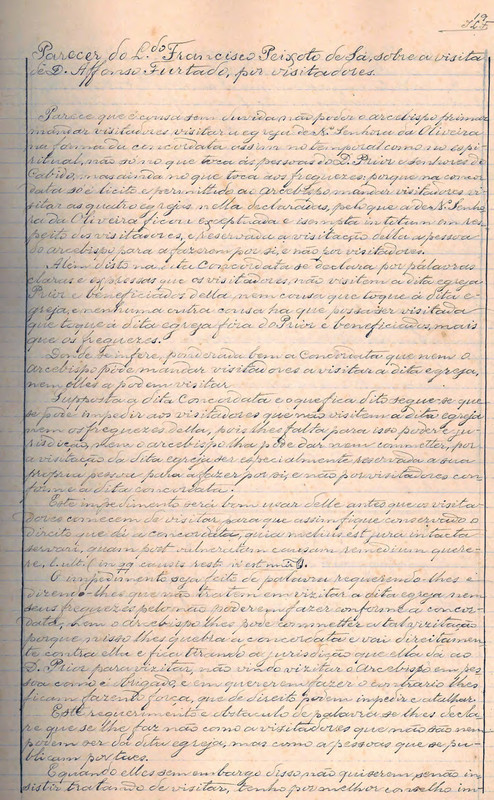 Parecer do L.do Francisco Peixoto de Sá, sobre a visita
de D. Affonso Furtado, por visitadores.
Parece que é cousa sem duvida, não poder o arcebispo primaz
mandar visitadores, visitar a egreja de N.ª Senhora da Oliveira
na forma da concordata assim no temporal como no espi-
ritual, não só no que toca ás pessoas do D. Prior e senhores do
Cabido, mas ainda no que toca aos freguezes; porque na concor-
data só é licito e permittido ao arcebispo mandar visitadores vi-
sitar as quatro egrejas, nella declaradas, pelo que a de N. Senho-
ra da Oliveira ficou exceptuada e isempta in totum em res-
peito dos visitadores, e reservada a visitação della a pessoa
do arcebispo para a fazer em por si, e não por visitadores.
Alem disto na dita Concordata se declara por palavras
claras e expressas que os visitadores, não visitem a dita egreja
Prior e beneficiados della, nem cousa que toque á dita e-
greja, e nenhuma outra cousa ha que possa ser visitada
que toque á dita egreja fora do Prior e beneficiados, mais
que os freguezes.
Donde se infere, ponderada bem a Concordata que nem o
arcebispo póde, mandar visitadores a visitar a dita egreja,
nem elles a podem visitar.
Supposta a dita Concordata e o que fica dito segue-se que
se póde impedir aos visitadores que não visitem a dita egreja
nem os freguezes della, pois lhes falta para isso poder e ju-
risdicção, nem o arcebispo lha póde dar nem commetter, por
a visitação da dita egreja ser especialmente reservada a sua
propria pessoa para a fazer por si, e não por visitadores con-
forme a dita concordata.
Este impedimento será bom usar delle antes que os visita-
dores comecem de visitar, para que assim fique conservado o
direito que dá a concordata, quia melius est jura intacta
servari, quam post vulneratam causam remedium quere-
re.
O impedimento seja feito de palavra requerendo-lhes e
dizendo-lhes que não tratem em vizitar a dita egreja nem
seus freguezes pelo não poderem fazer conforme a concor-
data, nem o arcebispo lhes póde commetter a tal vizitação
porque nisso lhes quebra a concordata e vai direitamen-
te contra ella e fica tirando a jurisdição que ella dá ao
D. Prior para vizitar, não vindo vizitar o arcebispo em pes-
soa como é obrigado, e em quererem fazer o contrario lhes
ficam fazendo força, que de direito podem impedir e atalhar.
Este requerimento e obstaculo de palavra se lhes decla-
re que se lhe faz não como a visitadores que não são nem
podem ser da dita egreja, mas como a pessoas que se pu-
blicam por taes.
E quando elles sem embargo disso não quiserem, senão in-
sistir tratando de visitar, tenho por melhor conselho im-